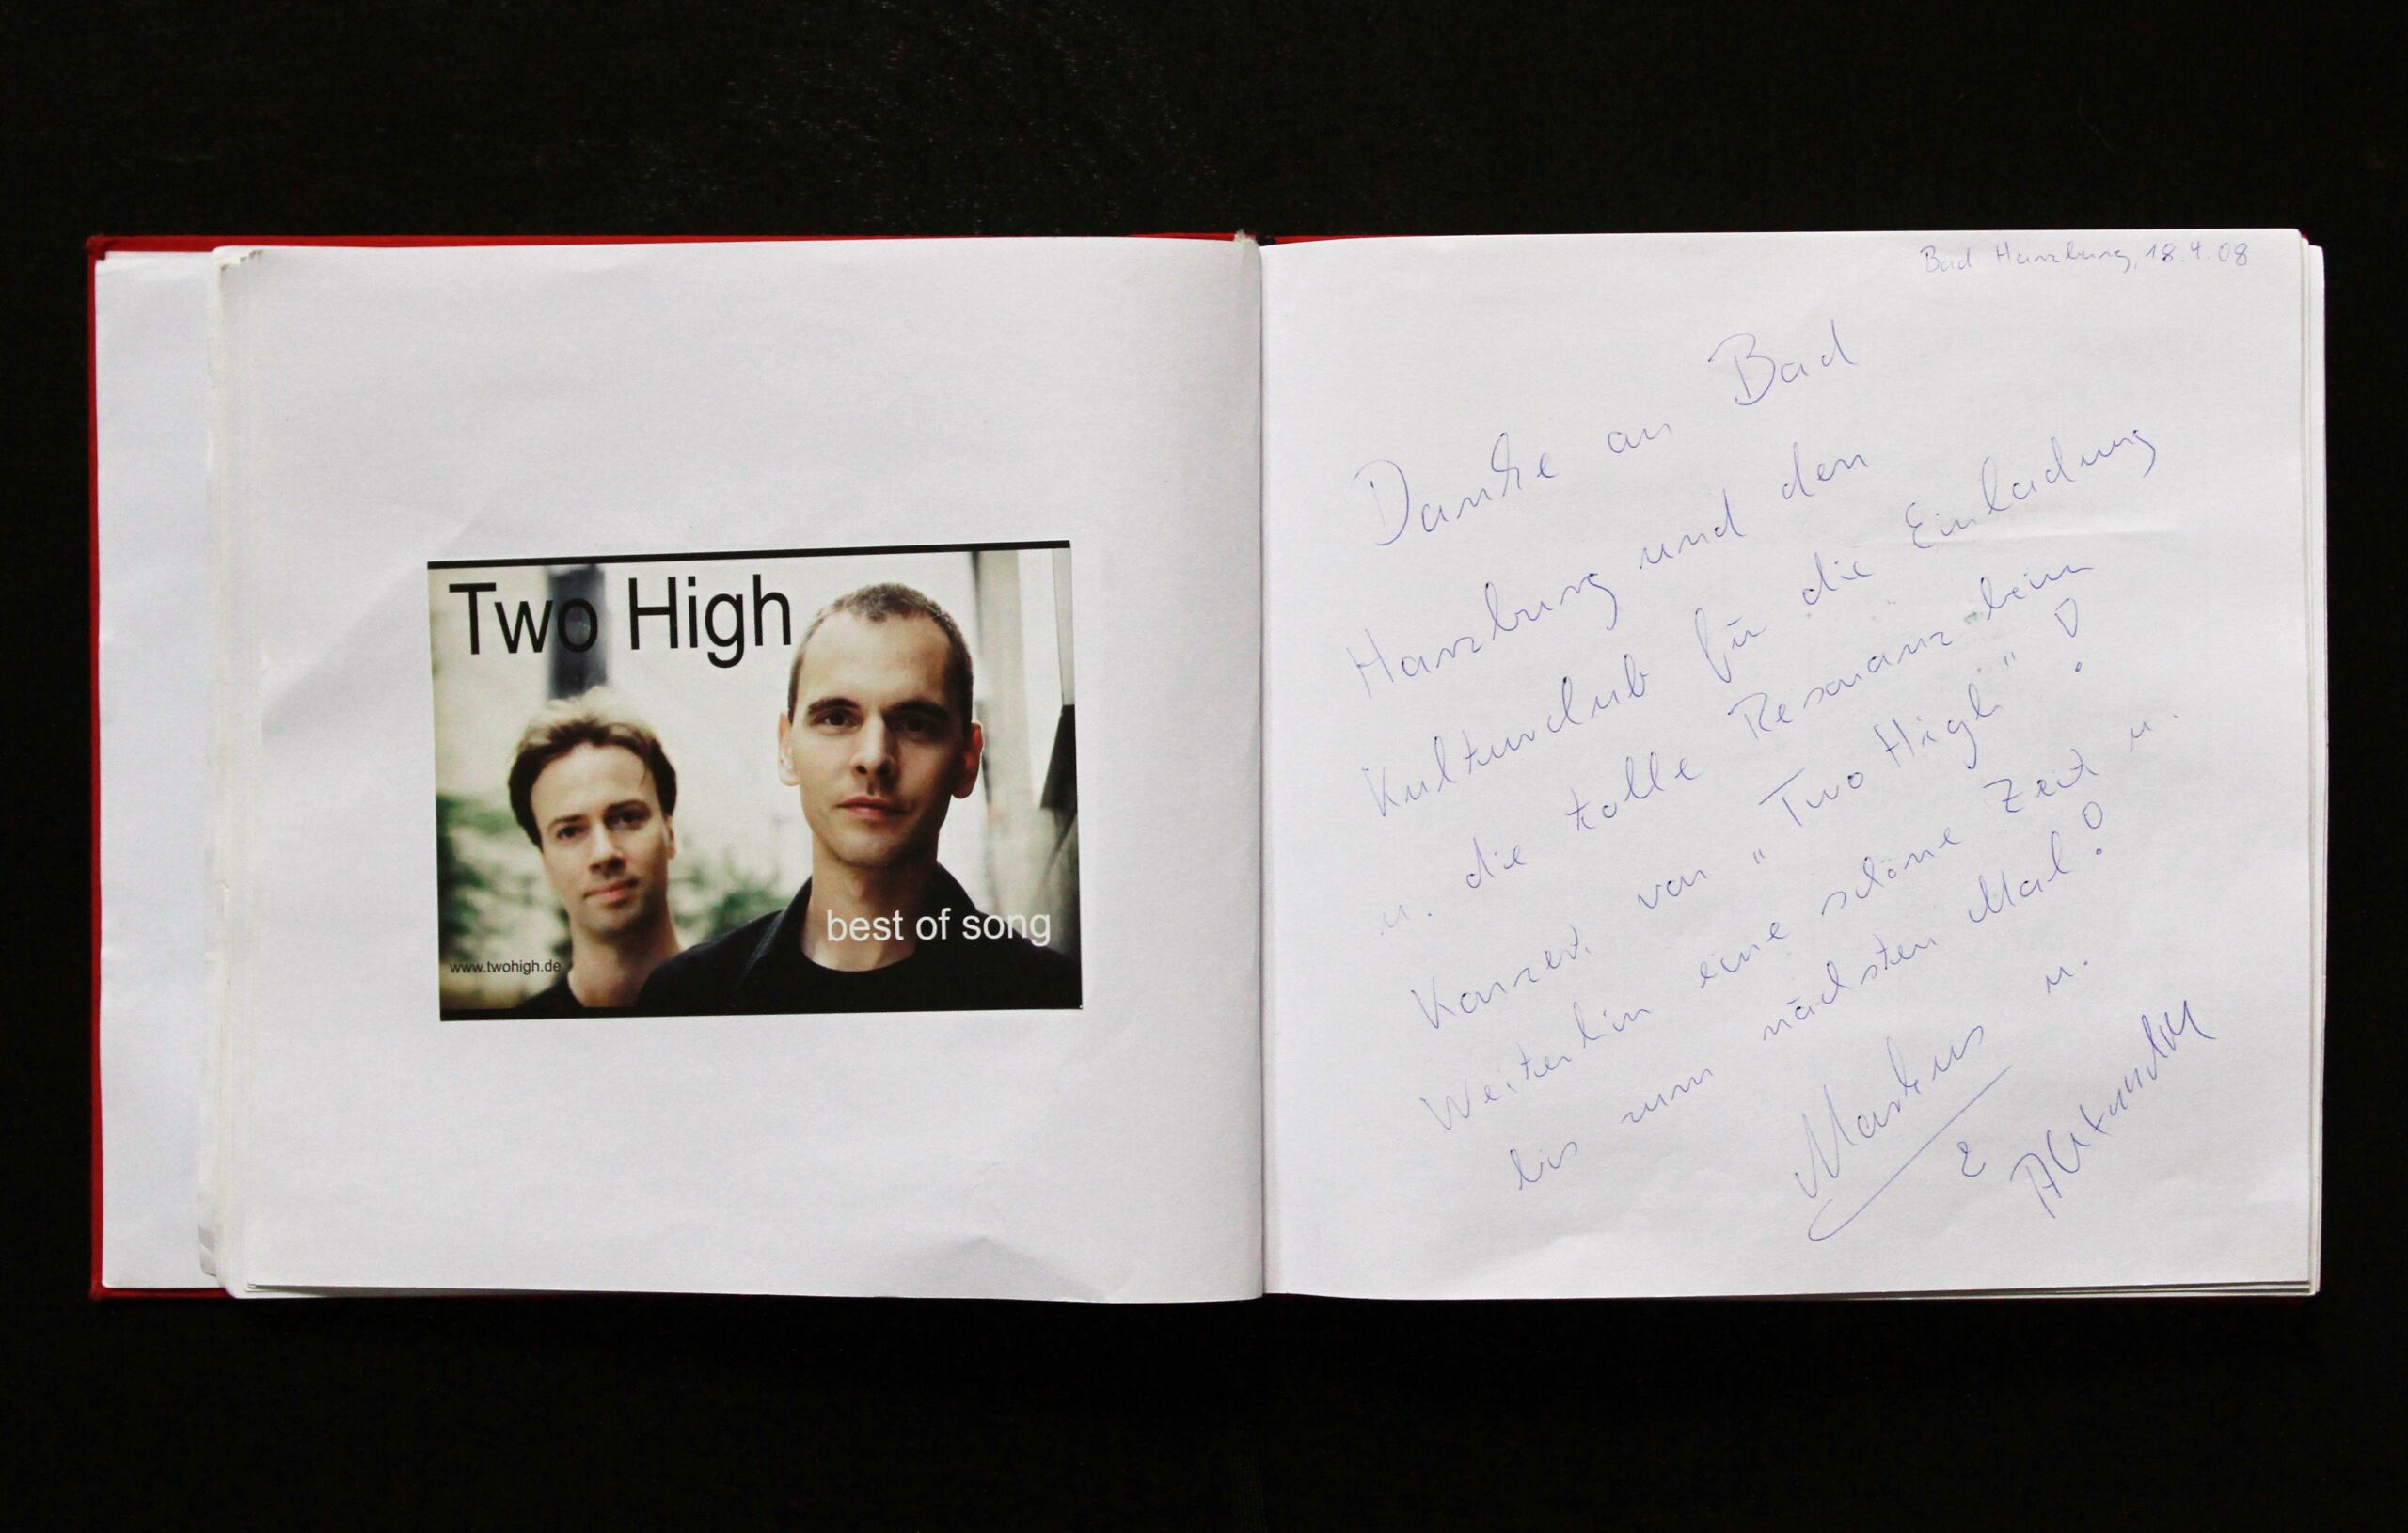 Two High
best of song
www.twohigh.de
Bad Harzburg, 18.4.08
Danke an Bad
Harzburg und den
Kulturclub für die Einladung
u. die tolle Resonanz beim
Konzert von "Two High"!
Weiterhin eine schöne Zeit u.
bis zum nächsten Mal!
Markus u.
&